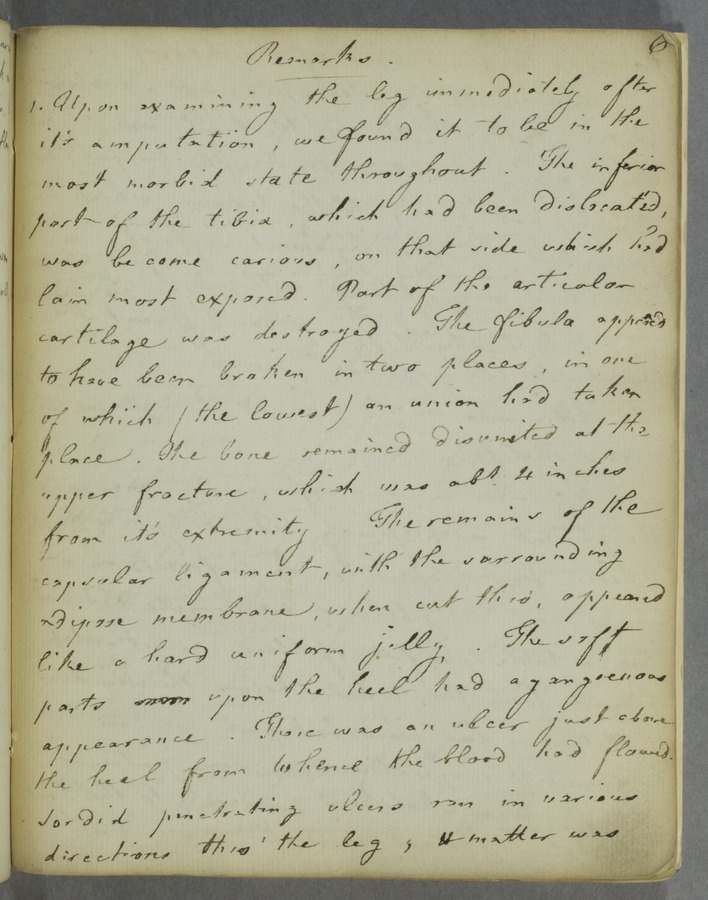 6
Remarks.
1. Upon examining the leg immediately after
it's amputation, we found it to be in the
most morbid state throughout. The inferior
part of the tibia, which had been dislocated,
was become carious, on that side which had
lain most exposed. Part of the articular
cartilage was destroyed. The fibula appeared
to have been broken in two places, in one
of which (the lowest) an union had taken
place. The bone remained disunited at the
upper fracture, which was abt. 4 inches
from it's extremity. The remains of the
capsular ligament, with the surrounding
adipose membrane, when cut thro', appeared
like a hard uniform jelly. The soft
parts upon the heel had a gangrenous
appearance. There was an ulcer just above
the heel from whence the blood had flowed.
Sordid penetrating ulcers ran in various
directions thro' the leg, & matter was